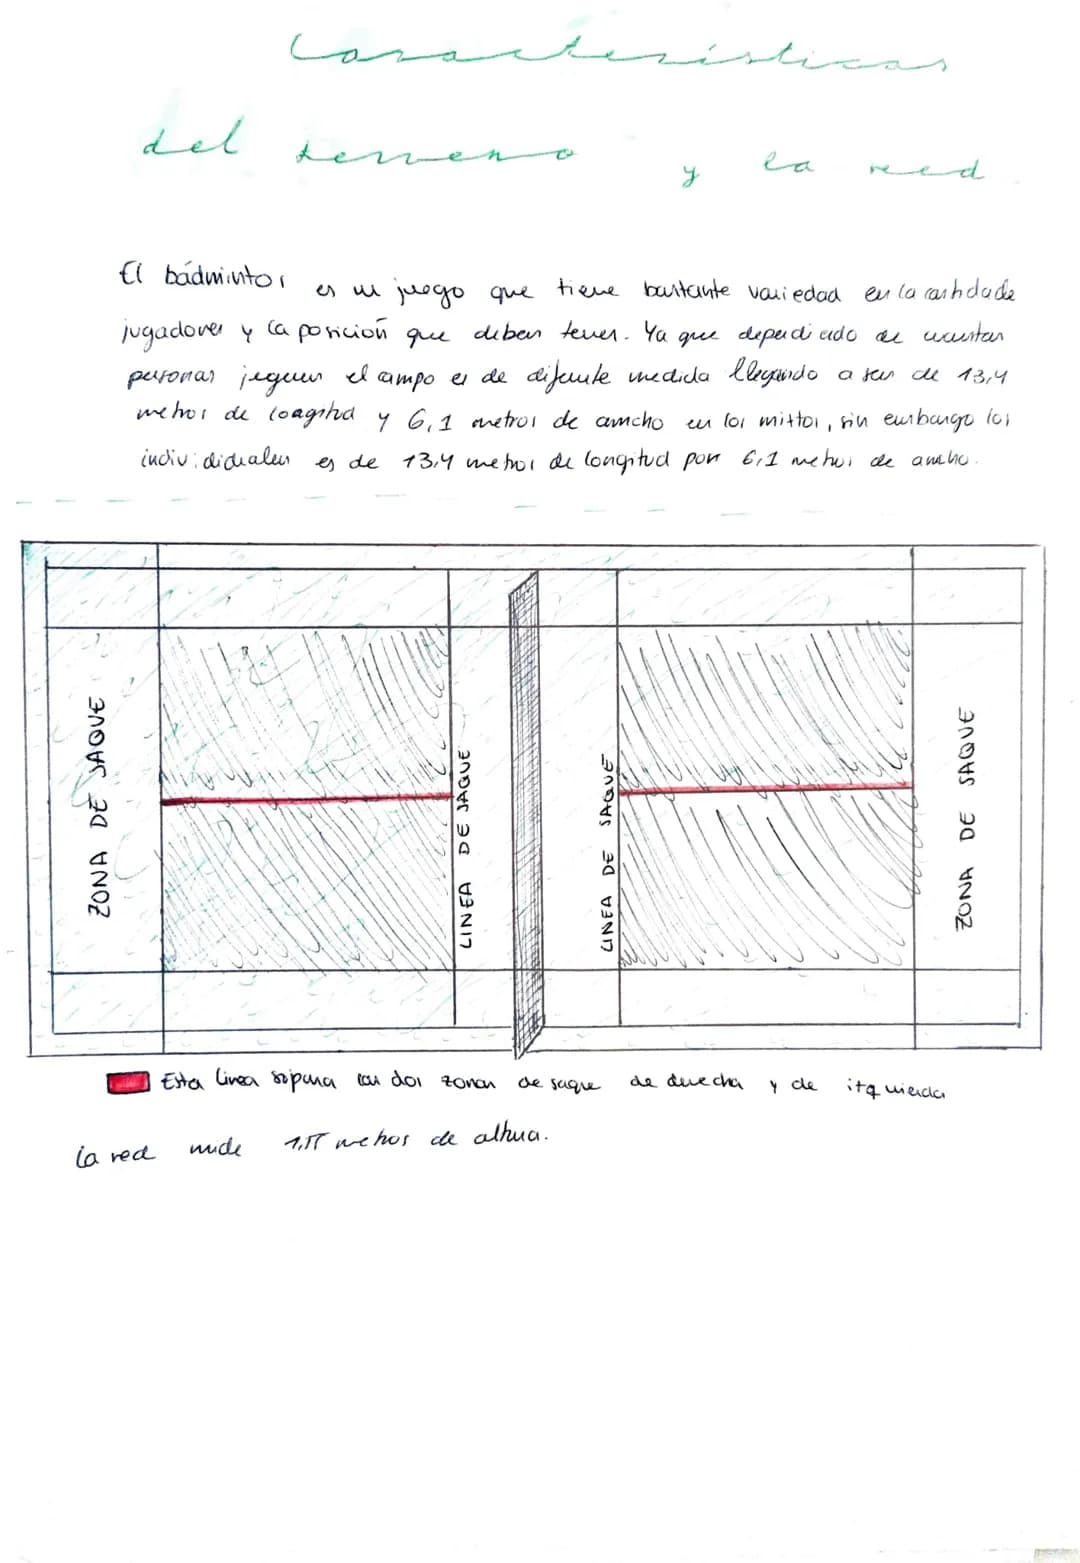 Características
del terreno y la reed
El bádminton es un juego que tiene bastante variedad en la cantidad de
jugadores y la posición que deben tener. Ya que dependiendo de cuantas
personas jueguen el campo es de diferente medida llegando a ser de 13,4
metros de longitud y 6,1 metros de amcho en los mixtos, sin embargo los
individuales es de 13,4 metros de longitud por 6,1 metros de ancho.
ZONA DE SAQUE
LINEA DE SAQUE
LINEA DE SAQUE
ZONA DE SAQUE
Esta linea separa las dos zonas de saque de derecha y de izquierda
La red mide 1,55 metros de altura.